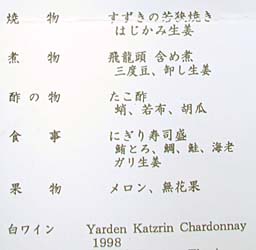 焼物 すずきの若狭焼き
はじかみ生姜
煮物 飛龍頭 含め煮
三度豆、卸し生姜
酢の物 たこ酢
蛸、若布、胡瓜
食事 にぎり寿司盛
鮪とろ、鯛、鮭、海老
ガリ生姜
果物 メロン、無花果
白ワイン Yarden Katzrin Chardonnay
1998